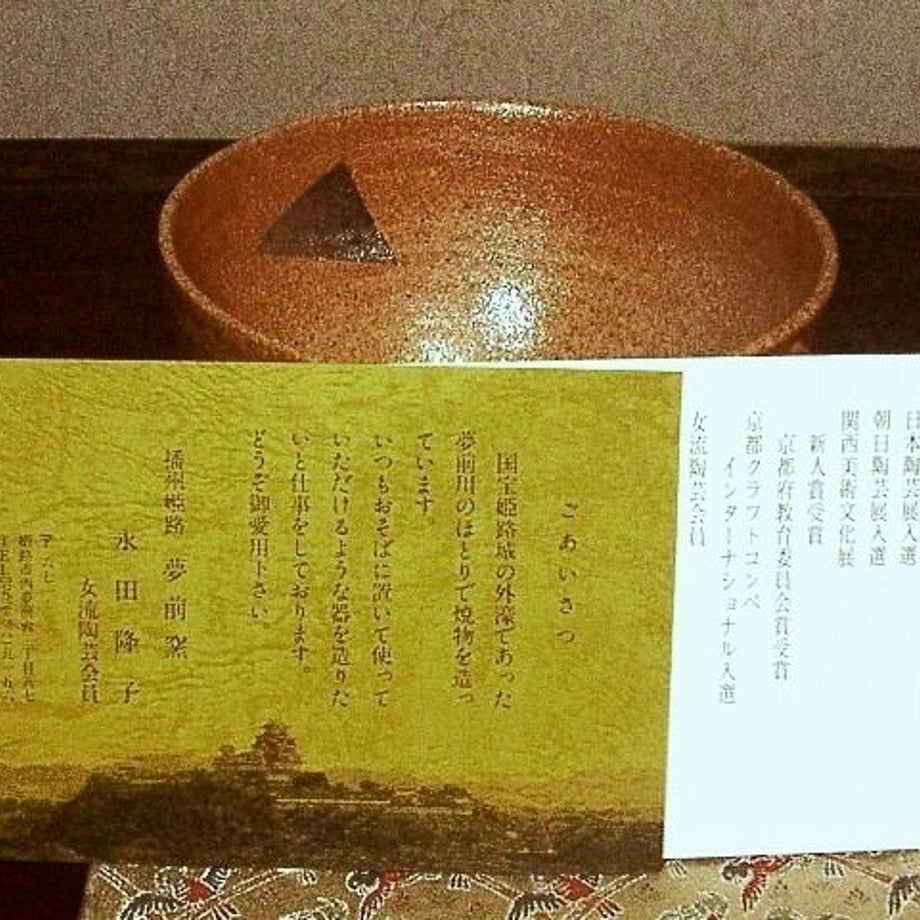 日本陶芸展入選
朝日陶芸展入選
関西美術文化展
新人賞受賞
京都府教育委員会賞受賞
京都クラフトコンペ
インターナショナル入選
女流陶芸会員
ごあいさつ
国宝姫路城の外濠であった
夢前川のほとりで焼物を造っ
ています。
いつもおそばに置いて使って
いただけるような器を造りた
いと仕事をしております。
どうぞ御愛用下さい。
播州姫路 夢前窯
永田隆子
女流陶芸会員